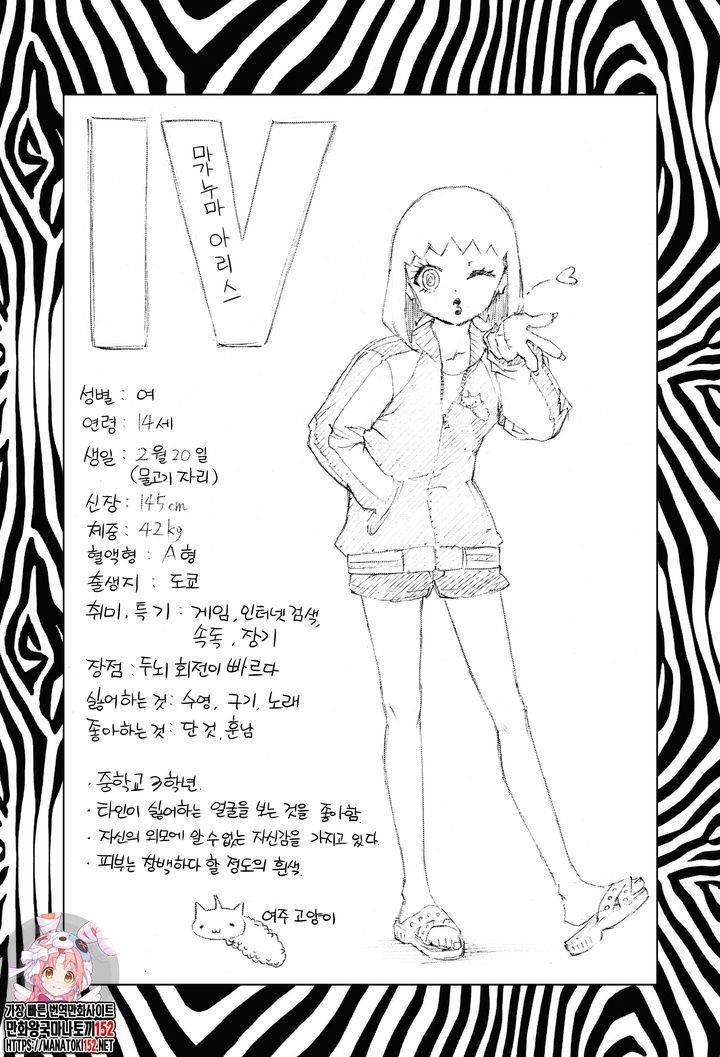 IV
마가누마 아리스
성별 : 여
연령 : 14세
생일 : 2월 20일
(물고기 자리)
신장 : 145cm
체중 : 42kg
혈액형 : A형
출생지 : 도쿄
취미, 특기 : 게임, 인터넷 검색,
속독, 장기
장점 : 두뇌 회전이 빠르다
싫어하는 것 : 수영, 구기, 노래
좋아하는 것 : 단 것, 훈남
· 중학교 3학년.
· 타인이 싫어하는 얼굴을 보는 것을 좋아함.
· 자신의 외모에 알 수 없는 자신감을 가지고 있다.
· 피부는 창백하다 할 정도의 흰색.
여주 고양이
가장 빠른 번역만화사이트
만화왕국마나토끼152
HTTPS://MANATOKI152.NET